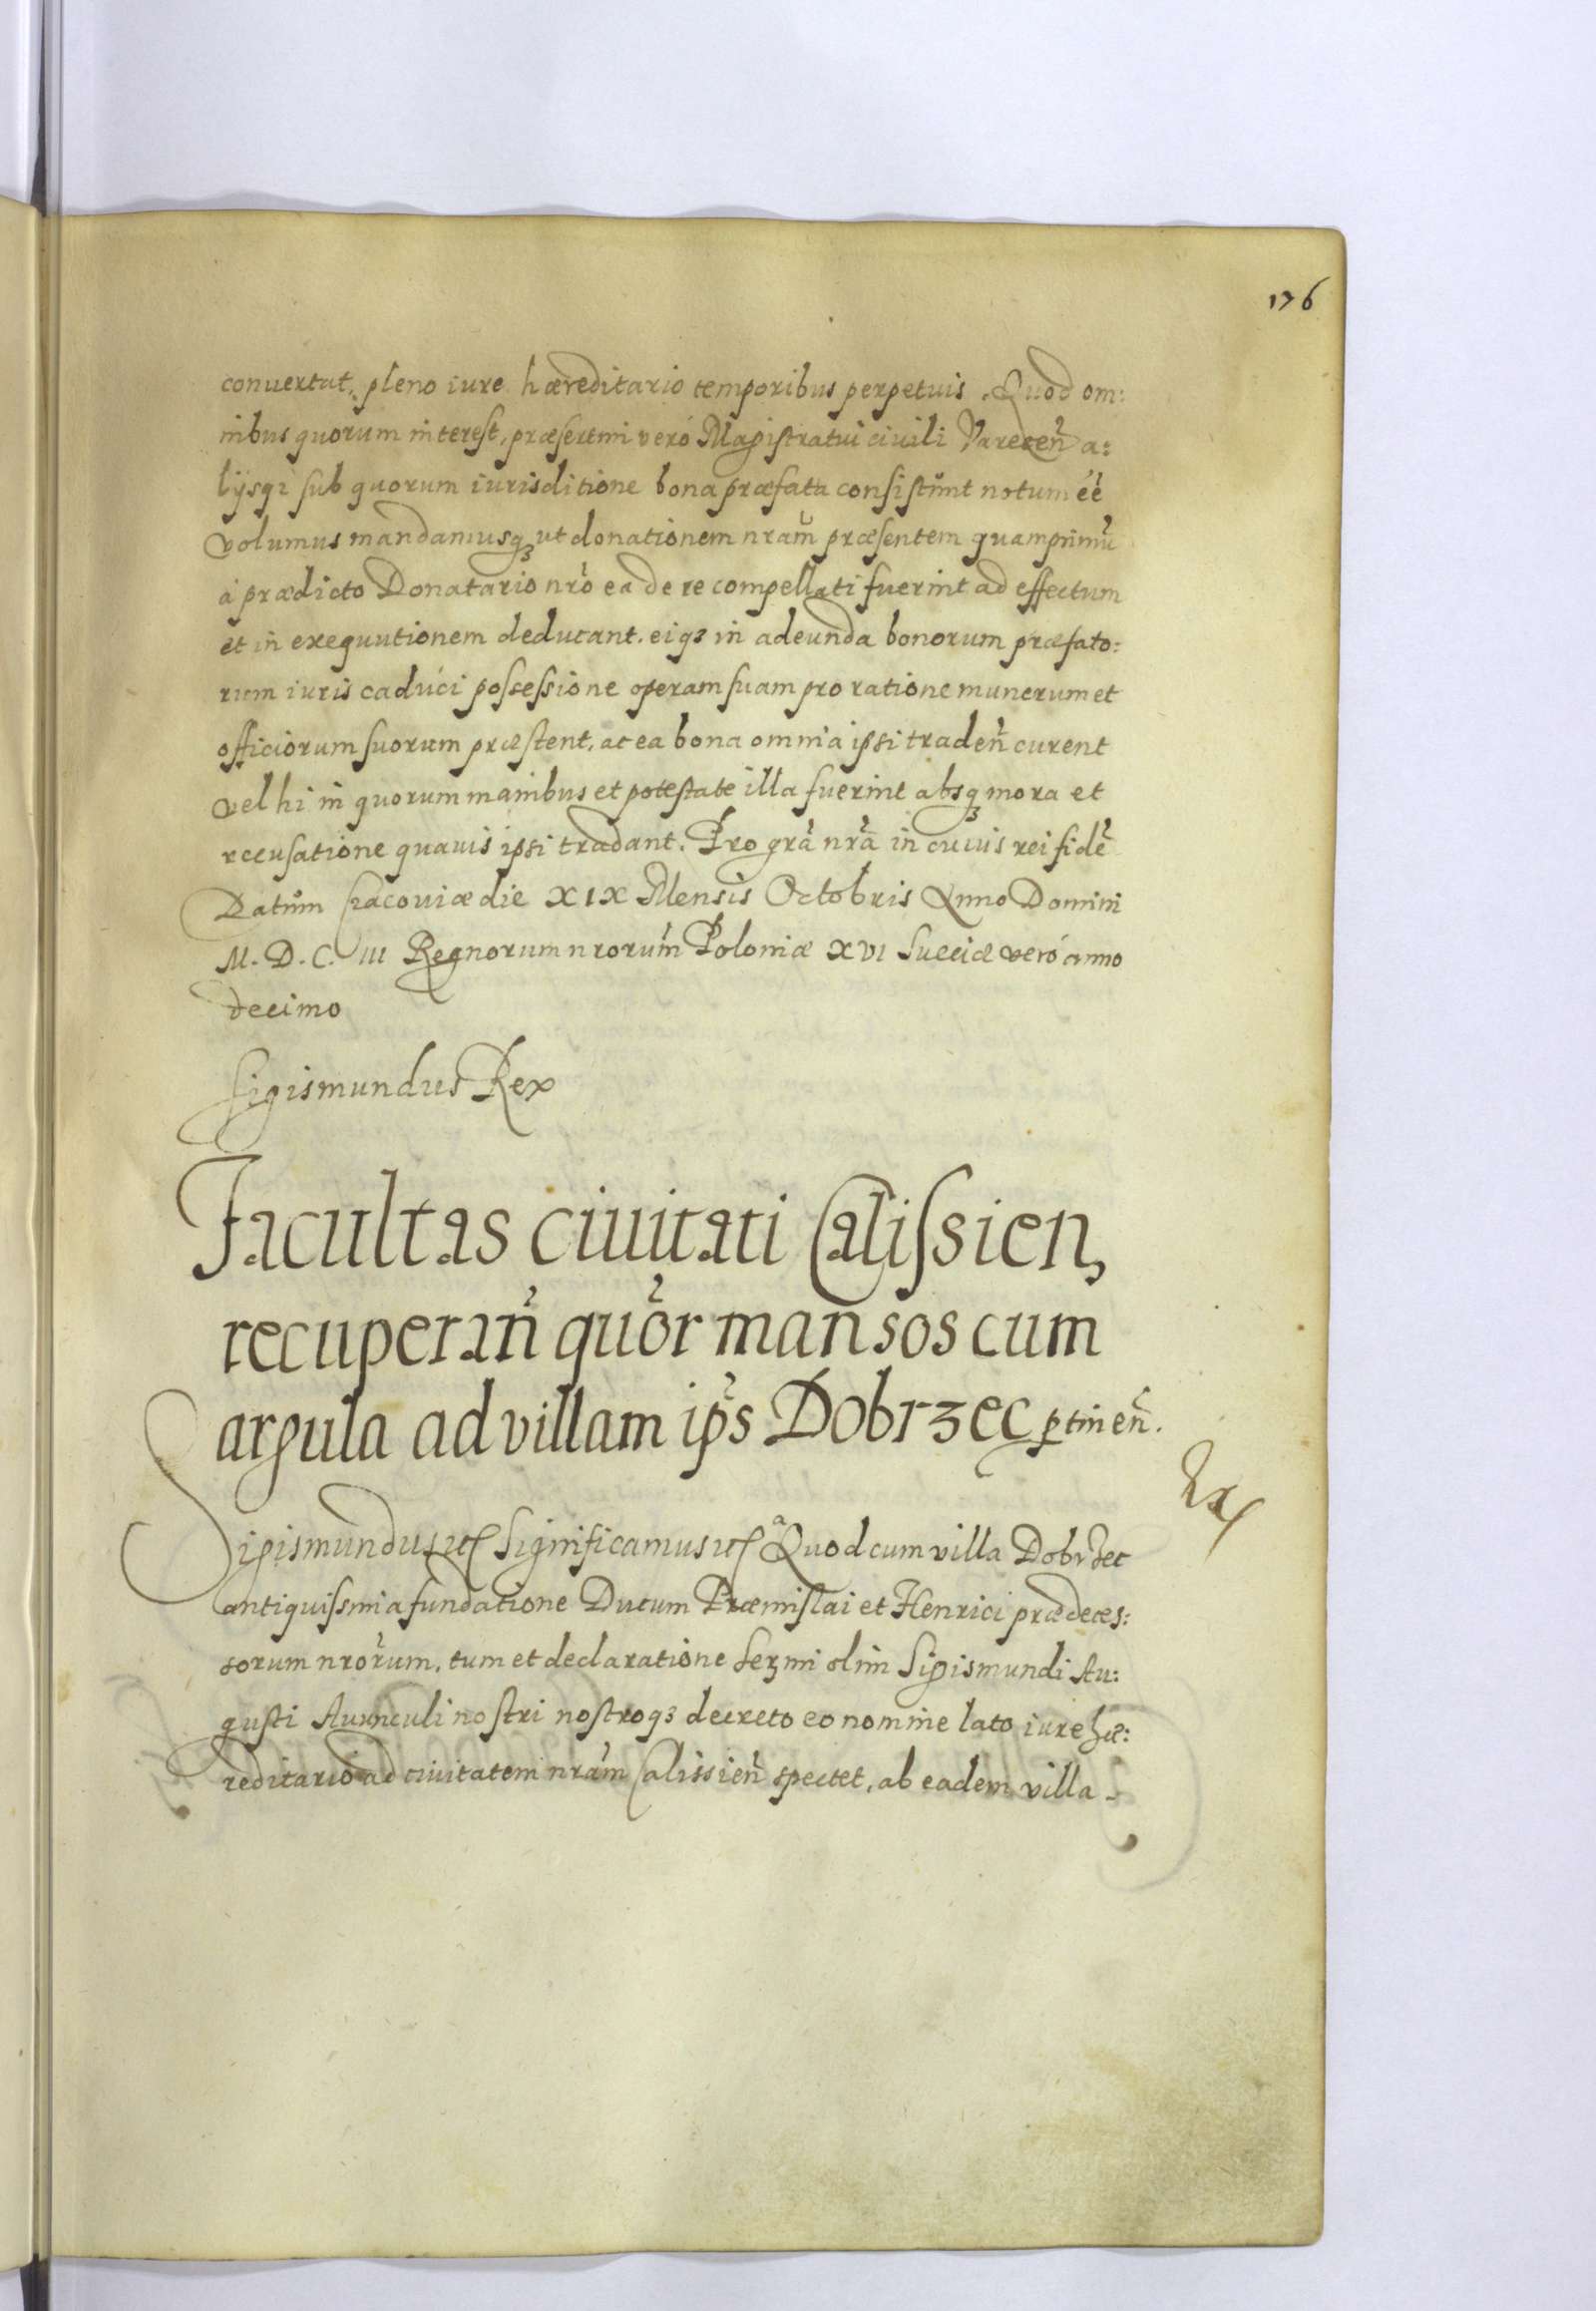 176
conuertat, pleno iure hæreditario temporibus perpetuis. Quod om:
nibus quorum interest, præsertim veró Magistratui ciuili Varecen̄ a:
lijsqȝ sub quorum iurisditione bona præfata consistunt notum éē
volumus mandamusqȝ ut donationem nram̄ præsentem quamprimū
à prædicto Donatario nrō ea de re compellati fuerint ad effectum
et in exequutionem deducant. eiqȝ in adeunda bonorum præfato:
rum iuris caduci possessione operam suam pro ratione munerum et
officiorum suorum præstent, ac ea bona omnia ipsi traden̄ curent
vel hi in quorum manibus et potestate illa fuerint absqȝ mora et
recusatione quauis ipsi tradant. Pro grā nrā in cuius rei fidē
Datum Cracouiæ die XIX Mensis Octobris Anno Domini
M. D. C. III Regnorum nrorum̄ Poloniæ XVI Sueciæ veró anno
decimo
Sigismundus Rex
Facultas ciuitati Calissien,
recuperan̄ quōr mansos cum
argula ad villam ip̄s Dobrzec ptinen̄.
Sigismundus etc Significamus etc Quod cum villa Dobrzec
antiquissima fundatione Ducum Præmislai et Henrici prædeces:
sorum nrōrum, tum et declaratione Serȝmi olim Sigismundi Au:
gusti Auunculi nostri nostroqȝ decreto eo nomine lato iure hæ:
reditario ad ciuitatem nram̄ Calissien̄ spectet, ab eadem villa